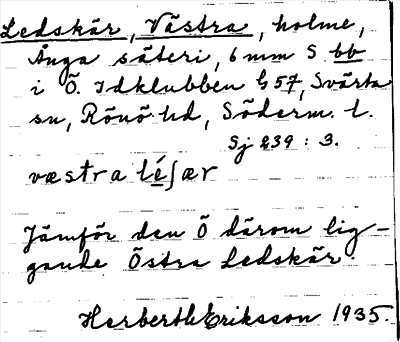 Ledskär, Västra, holme,
Ånga säteri, 6 mm S bb
i Ö. Idklubben G57, Svärta
sn, Rönö hd, Söderm. l.
Sj 239 : 3.
væstra léʃær
Jämför den Ö därom lig-
gande Östra Ledskär.
Herberth Eriksson 1935.